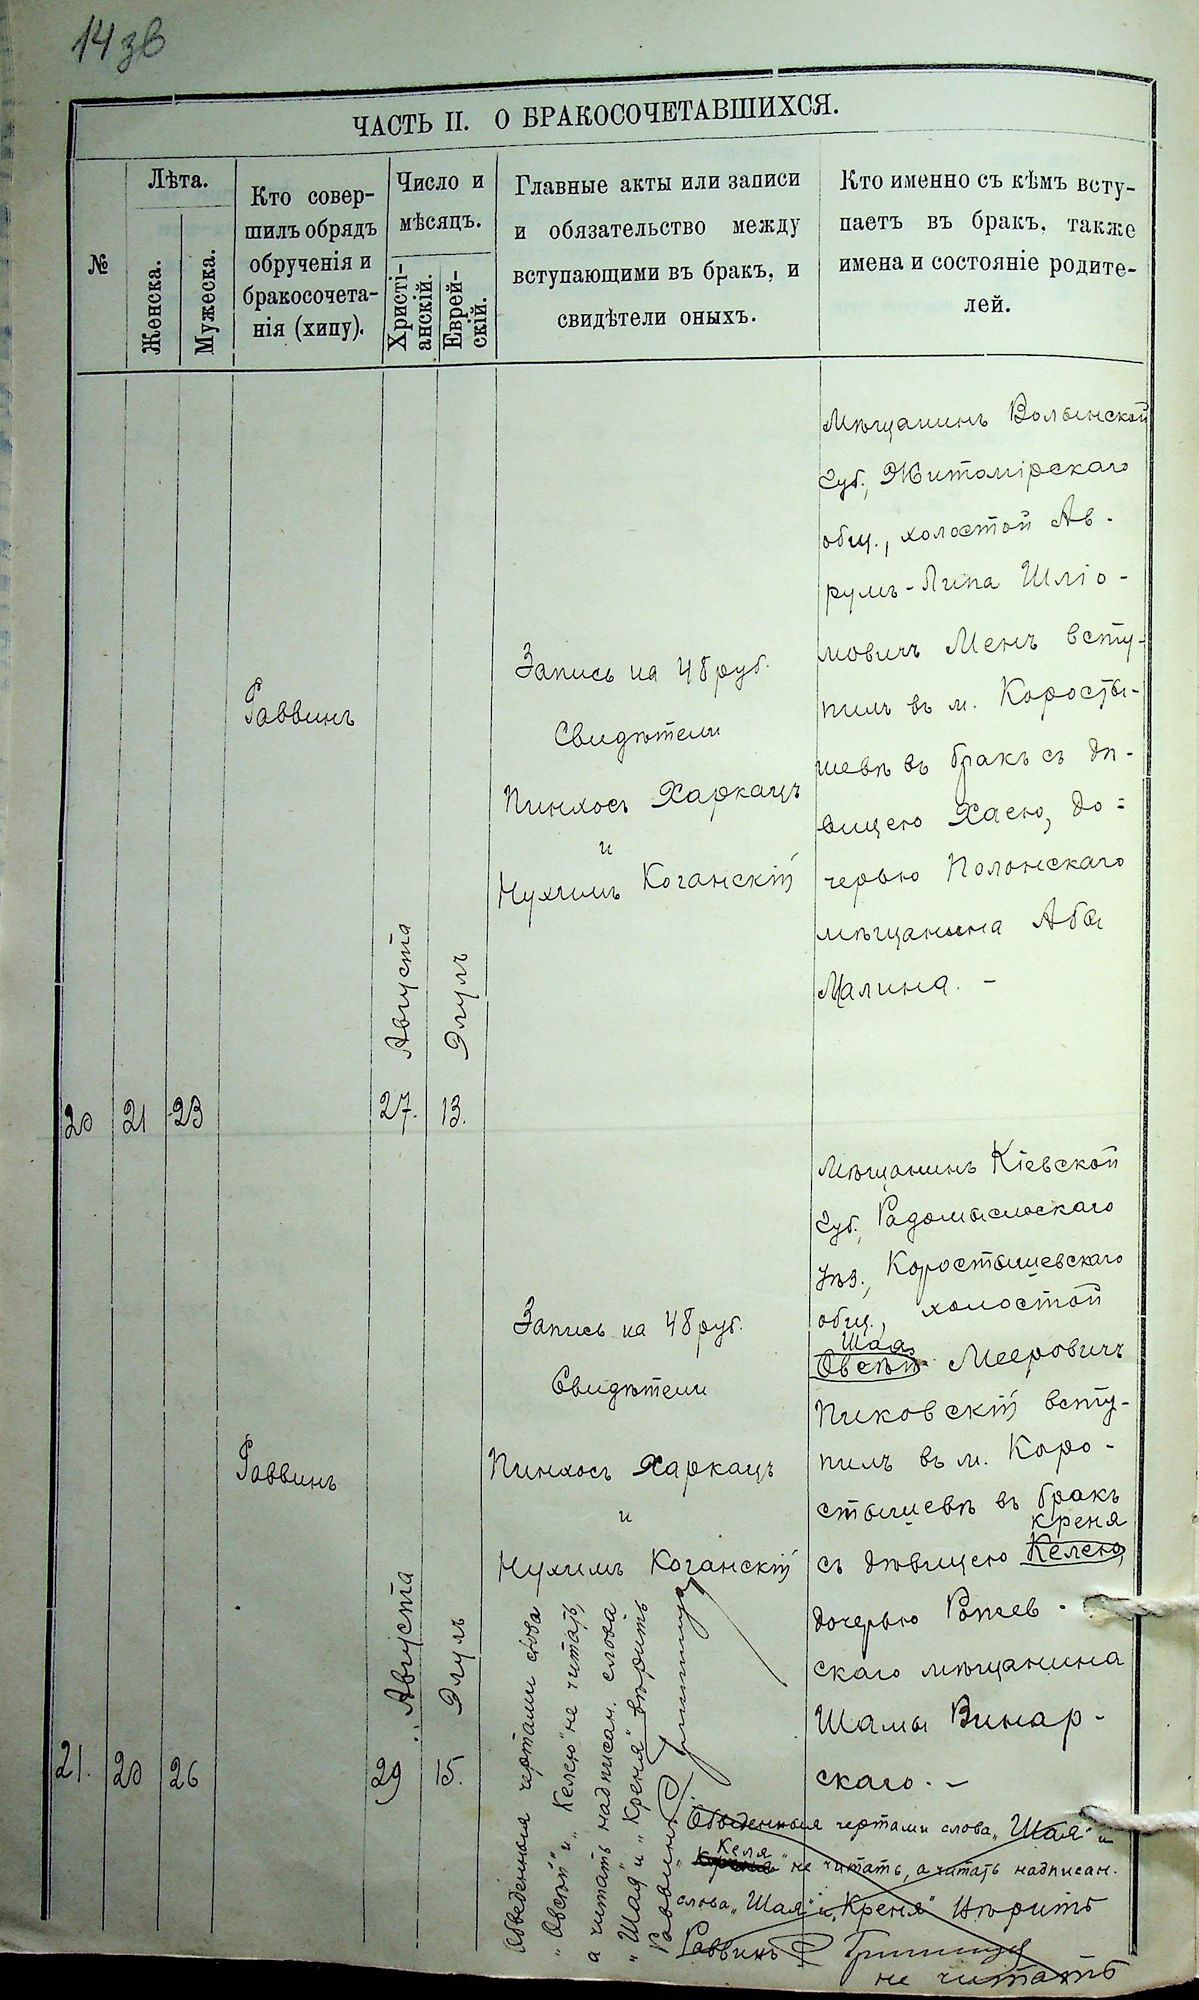 14 зв
ЧАСТЬ II. О БРАКОСОЧЕТАВШИХСЯ.
№
Лѣта.
Женска.
Мужеска.
Кто совер-
шилъ обрядъ
обрученія и
бракосочета-
нія (хипу).
Число и
мѣсяцъ.
Христі-
анскій.
Еврей-
скій.
Главные акты или записи
и обязательство между
вступающими въ бракъ, и
свидѣтели оныхъ.
Кто именно съ кѣмъ всту-
паетъ въ бракъ, также
имена и состояніе родите-
лей.
20
21
23
Раввинъ
Августа
27.
Элулъ
13.
Запись на 48 руб.
Свидѣтели
Пинхосъ Харкацъ
и
Нухимъ Коганскій
Мѣщанинъ Волынской
Губ., Житомірскаго
общ., холостой Ав-
румъ-Липа Шліо-
мовичъ Менъ всту-
пилъ въ м. Коросты-
шевѣ въ бракъ съ дѣ-
вицею Хаею, до=
черью Полонскаго
мѣщанина Аба
Малина. -
21.
20
26
Раввинъ
Августа
29
Элулъ
15.
Запись на 48 руб.
Свидѣтели
Пинхосъ Харкацъ
и
Нухимъ Коганскій
Мѣщанинъ Кіевской
Губ., Радомысльскаго
уѣз., Коростышевскаго
общ., холостой
Шая
Овсѣй Мееровичъ
Пиковскій всту-
пилъ въ м. Коро-
стышевѣ въ бракъ
Креня
съ дѣвицею Келею,
дочерью Ропчев-
скаго мѣщанина
Шамы Винар-
скаго. -
Обведенныя чертами слова
„Овсѣй" и „Келею" не читать,
а читать надписан. слова
„Шая" и „Креня" вѣрить
Раввинъ
Обведенныя чертами слова „Шая" и
Келя
„" не читать, а читать надписан.
слова „Шая" и „Креня" вѣрить
Раввинъ
не читать